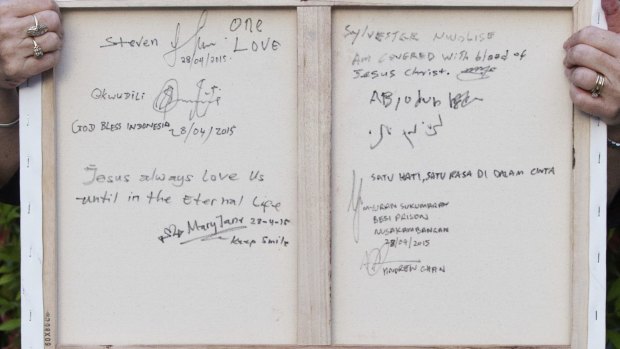 Steven
ONE
LOVE
28/04/2015
OKWUDILI
GOD BLESS INDONESIA
28/04/2015
Jesus always Love Us
until in the Eternal Life
MaryJane 28-4-15
Keep Smile
SYLVESTER NWOLISE
AM COVERED WITH blood of
JESUS CHRIST.
SATU HATI, SATU RASA DI DALAM CINTA
MYURAN SUKUMARAN
BESI PRISON
NUSAKAMBANGAN
28/04/2015
ANDREW CHAN